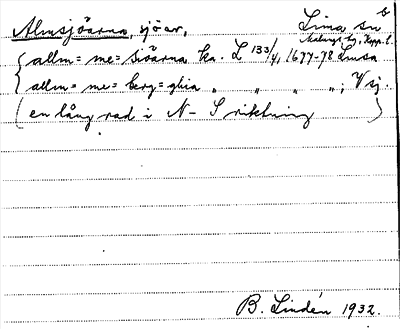 Almsjöarna, sjöar, Lima sn
Malungs tg, Kopp. l.
allm= me= siöarna ka. L 133/41, 1677-78 Lusa
allm= me= berg= ghia " " " "; V sj.
(en lång rad i N-S riktning)
B. Lindén 1932.